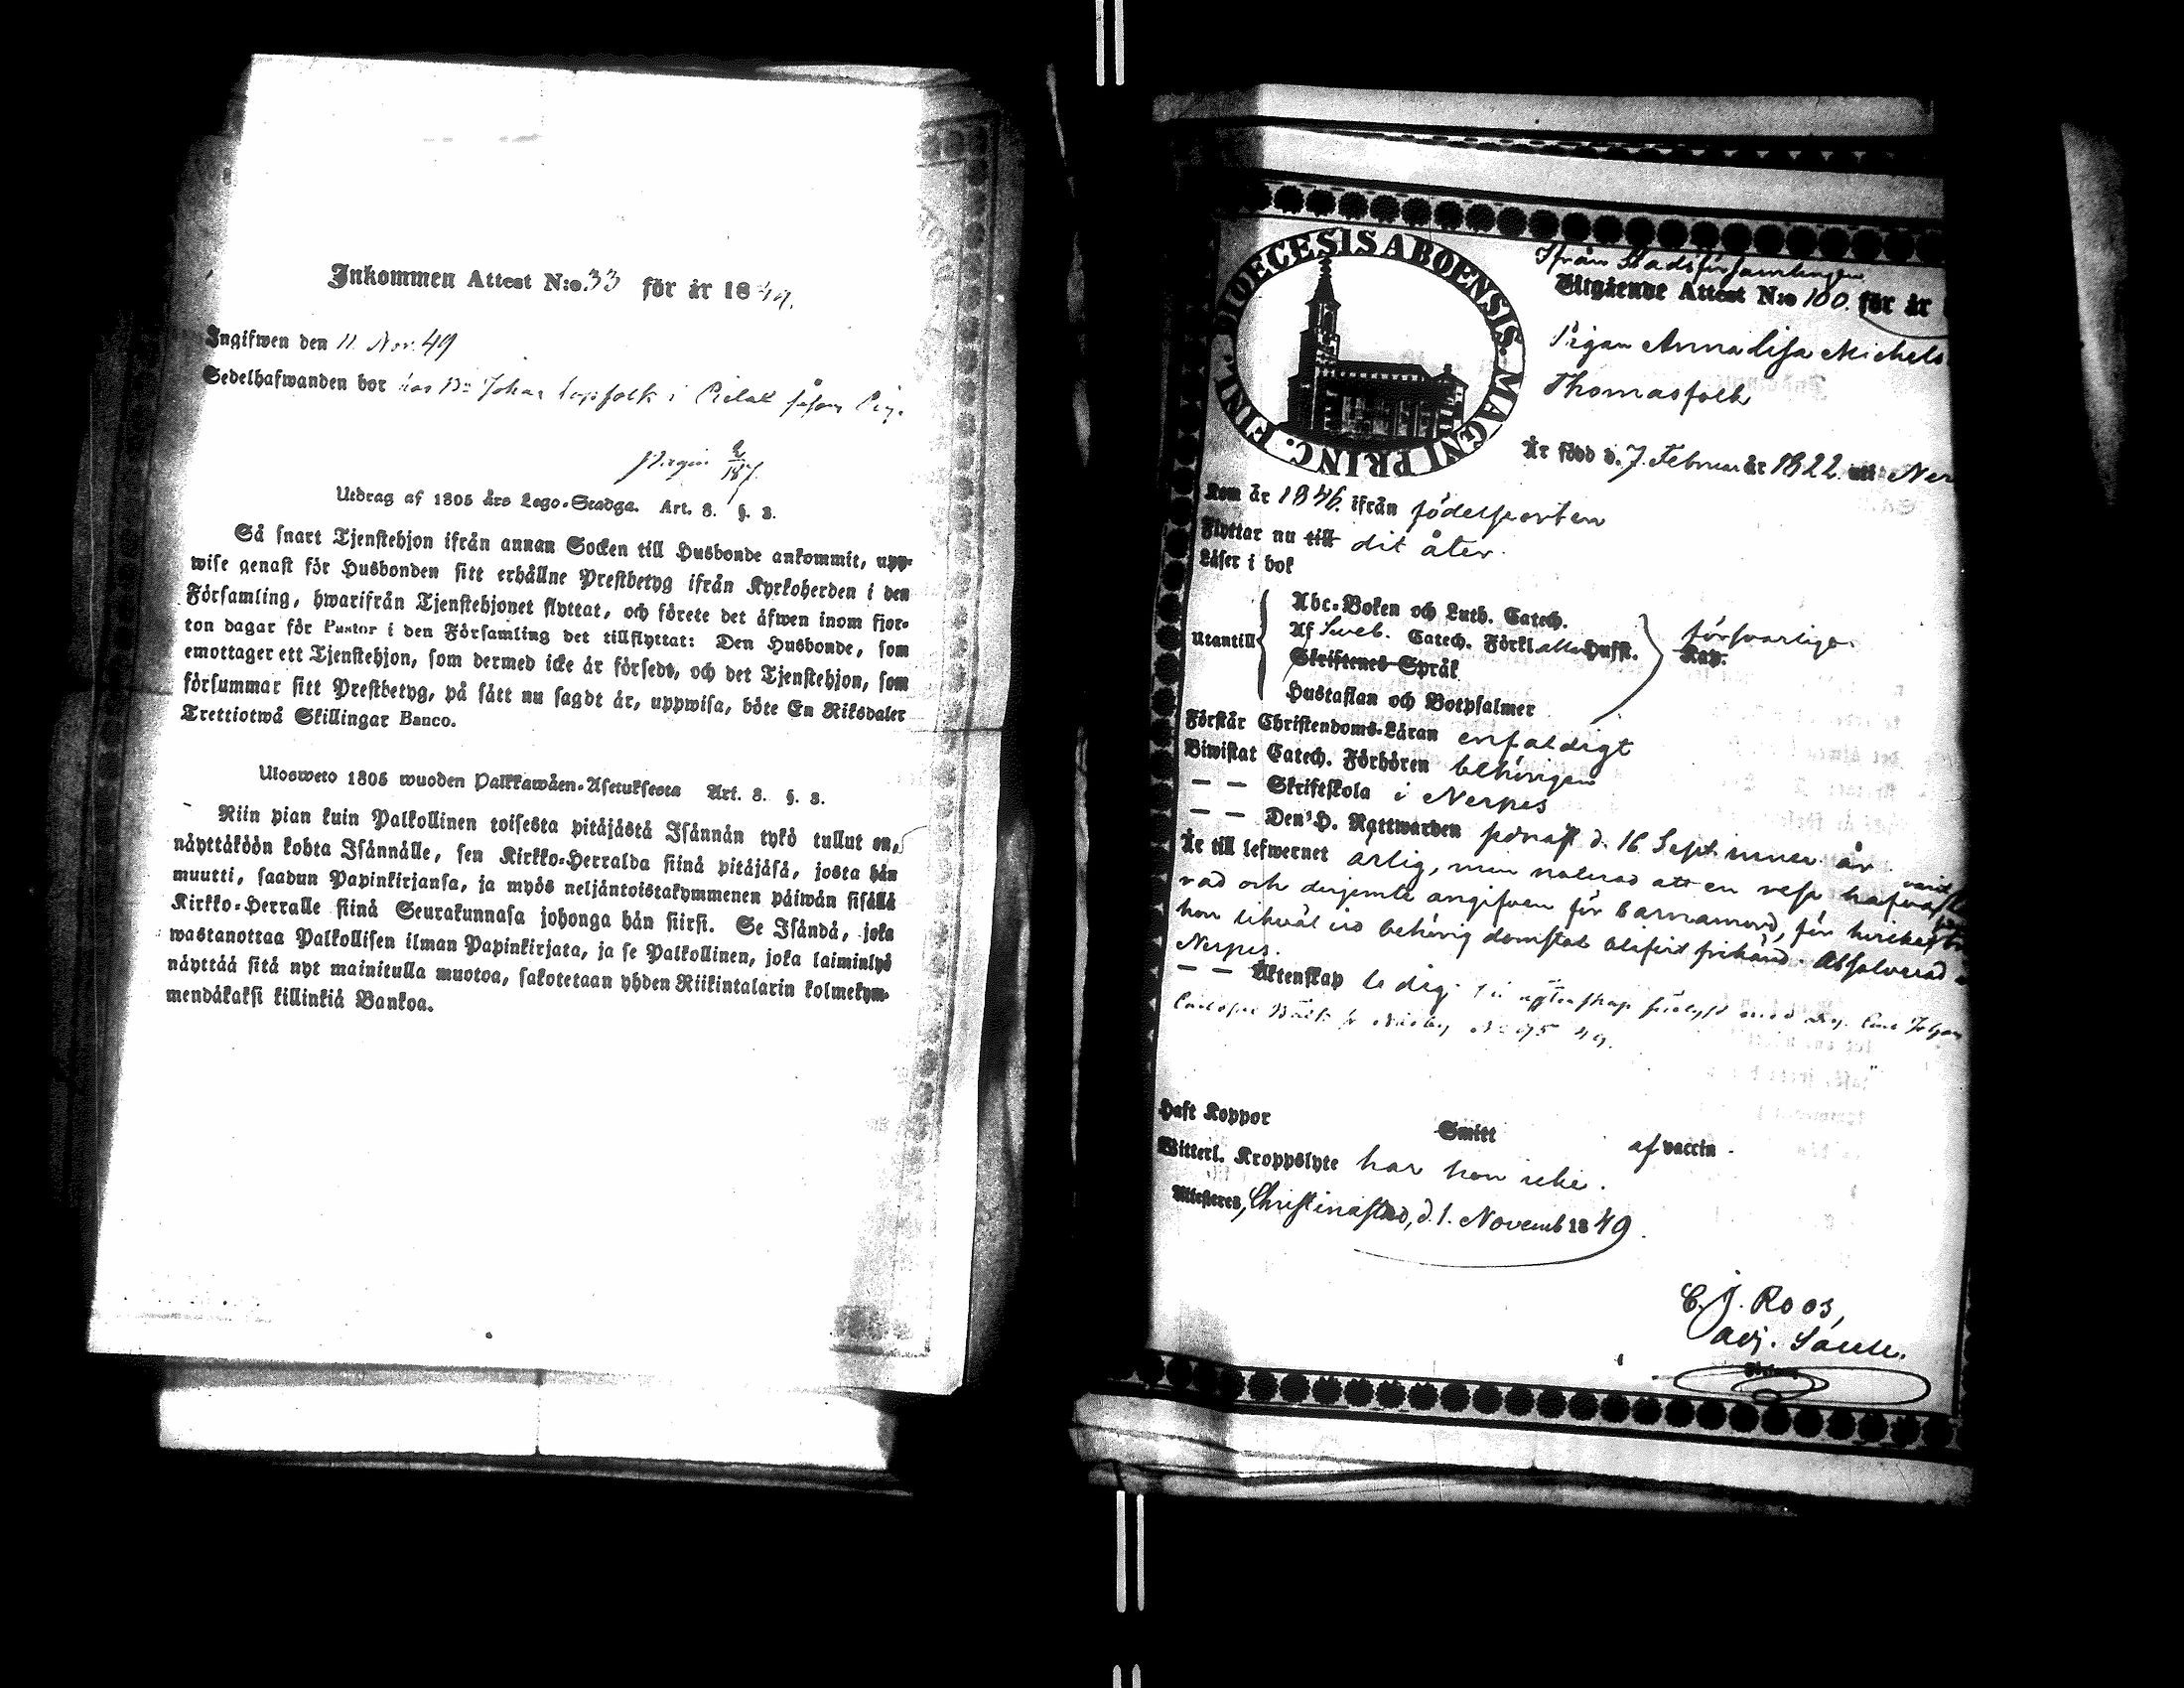 Inkommen Attest N:o 33 för år 1849.
Ingifwen den 11. Nov. 49
Sedelhafwanden bor hos Bn Johan Lapfolk i Pielat såsom Pig.
Utdrag af 1805 års Lego-Stadga. Art. 8. §. 3.
Så snart Tjenstehjon ifrån annan Socken till Husbonde ankommit, upp-
wise genast för Husbonden sitt erhållne Prestbetyg ifrån Kyrkoherden i den
Församling, hwarifrån Tjenstehjonet flyttat, och förete det äfwen inom fjor-
ton dagar för Pastor i den Församling det tillflyttat: Den Husbonde, som
emottager ett Tjenstehjon, som dermed icke är försedt, och det Tjenstehjon, som
försummar sitt Prestbetyg, på sätt nu sagdt är, uppwisa, böte En Riksdaler
Trettiotwå Skillingar Banco.
Ulosweto 1805 wuoden Palkkawäen-Asetuksesta Art. 8. §. 3.
Niin pian kuin Palkollinen toisesta pitäjästä Isännän tykö tullut on,
näyttäköön kohta Isännälle, sen Kirkko-Herralda siinä pitäjäsä, josta hän
muutti, saadun Papinkirjansa, ja myös neljäntoistakymmenen päiwän sisällä
Kirkko-Herralle siinä Seurakunnasa johonga hän siirsi. Se Isändä, joka
wastanottaa Palkollisen ilman Papinkirjata, ja se Palkollinen, joka laiminlyö
näyttää sitä nyt mainitulla muotoa, sakotetaan yhden Riikintalarin kolmekym-
mendäkaksi killinkiä Bankoa.
DIOECESIS ABOENSIS. MAGNI PRINC. FINL.
Ifrån Stadsförsamlingen
Utgående Attest N:o 100. för år
Pigan Anna Lisa Michels
Thomasfolk
Är född d. 7. Februar år 1822. uti Ner
Kom år 1846. ifrån födelseorten
Flyttar nu till dit åter.
Läser i bok
Utantill
Abc-Boken och Luth. Catech.
Af Sveb. Catech. Förkl. alla Hufst.
Skriftenes Språk
Hustaflan och Botpsalmer
försvarliga
Kap.
Förstår Christendoms-Läran enfaldigt
Biwistat Catech. Förhören behörigen
— — Skriftskola i Nerpes
— — Den H. Nattwarden sednast d. 16 Sept. innev. år
Är till lefwernet ärlig, men noterad att en resa hafva varit
rad och derjemte angifven för barnamord, för hvilket
hon likväl vid behörig domstol blifvit frikänd. Absolverad
Nerpes.
— — Äktenskap ledig. Till ägtenskap förlyst med Drg. Carl Johan
Carlsson Bäck
Haft Koppor
Smitt
af vaccin.
Witterl. Kroppslyte har hon icke.
Attesteres, Christinastad, d. 1. Novemb 1849.
C. J. Roos,
adj. Sacell.